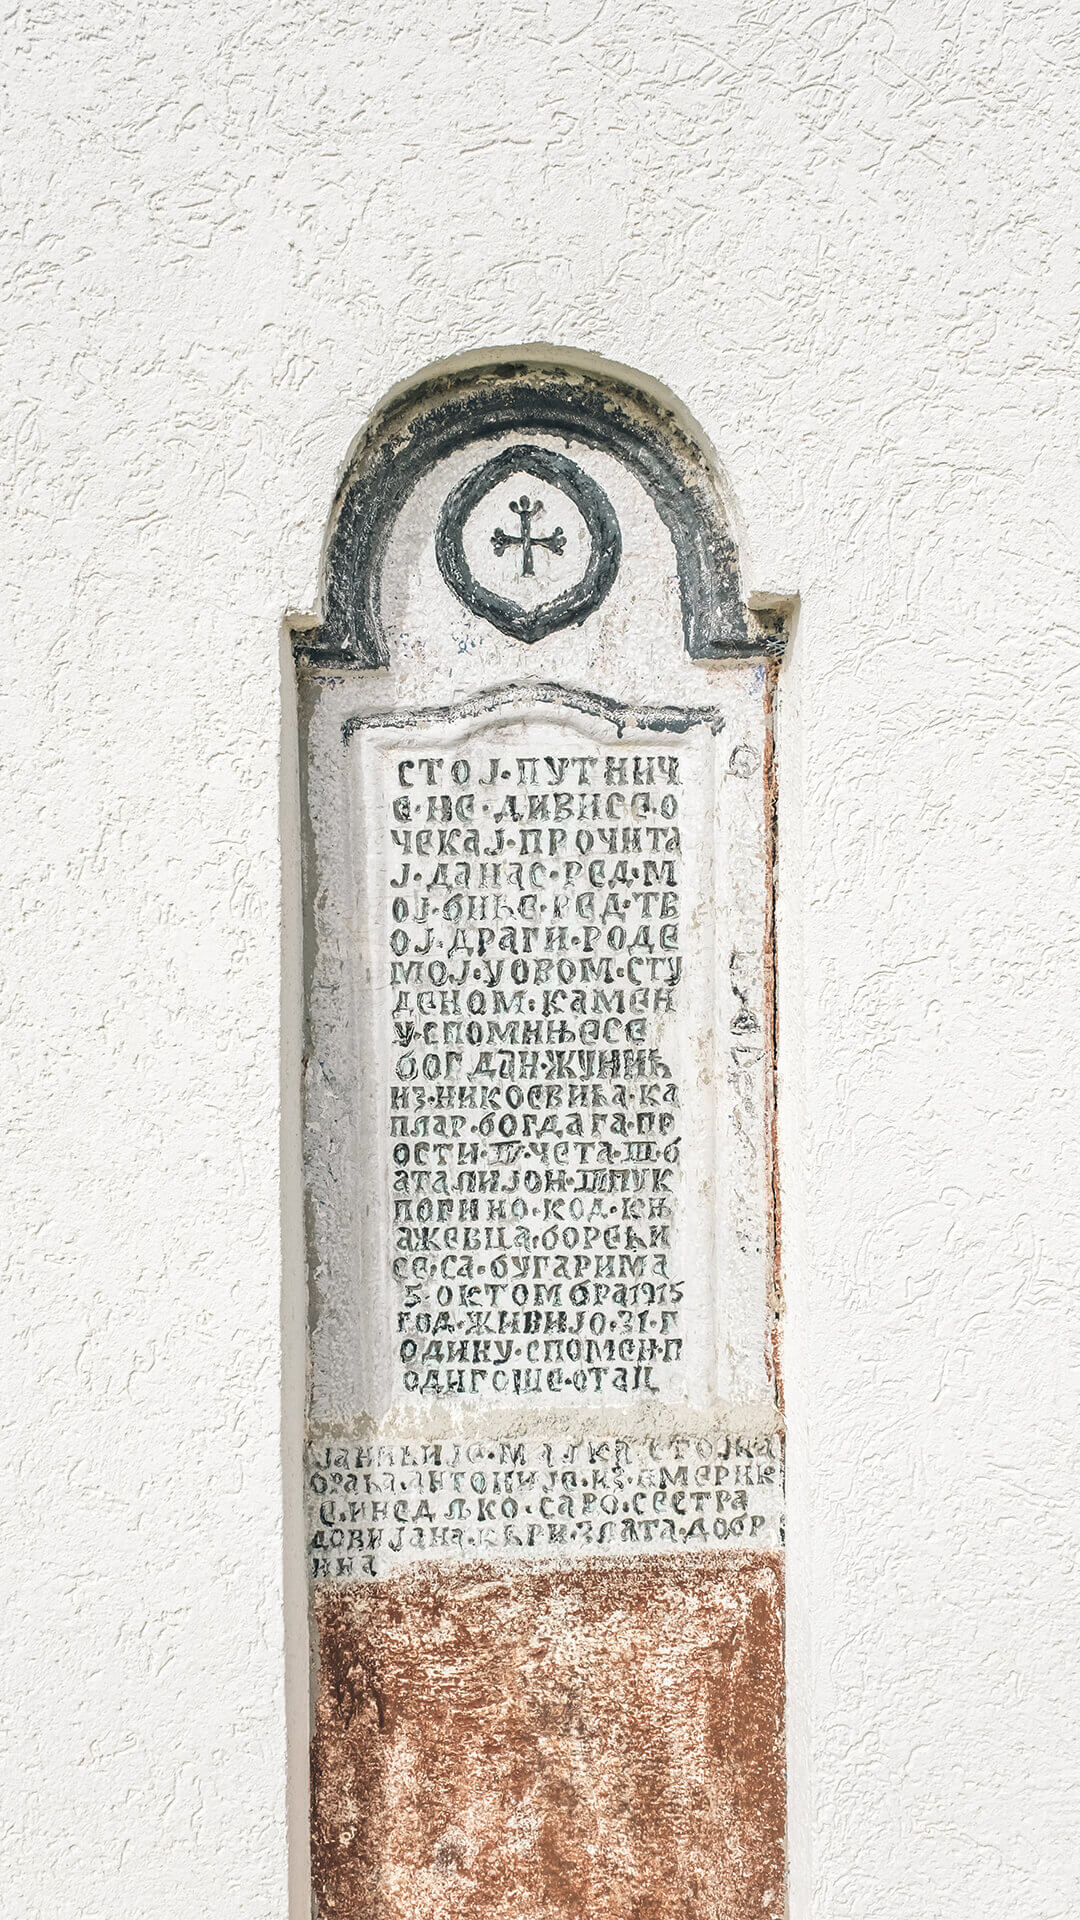 СТОЈ·ПУТНИЧ
Е·НЕ·ДИВИСЕ·О
ЧЕКАЈ·ПРОЧИТА
Ј·ДАНАС·РЕД·М
ОЈ·БИЋЕ·РЕД·ТВ
ОЈ·ДРАГИ·РОДЕ
МОЈ·УОВОМ·СТУ
ДЕНОМ·КАМЕН
У·СПОМИЊЕСЕ
БОГДАН·ЖУНИЋ
ИЗ·НИКОЕВИЋА·КА
ПЛАР·БОГДАГА·ПР
ОСТИ·IV·ЧЕТА·III·Б
АТАЛИЈОН·III ПУК
ПОГИНО·КОД·КЊ
АЖЕВЦА·БОРЕЋИ
СЕ·СА·БУГАРИМА
5·ОКТОМБРА1915
ГОД·ЖИВИЈО·31·Г
ОДИНУ·СПОМЕН·П
ОДИГОШЕ·ОТАЦ
ЈАНИЋИЈЕ·МАЈКА СТОЈКА
АНТОНИЈЕ·ИЗ·АМЕРИК
Е·ИНЕДЉКО·САВО·СЕСТРА
ДОВИЈАНА·КЋРИ·ЗЛАТА·ДОБР
ИНА